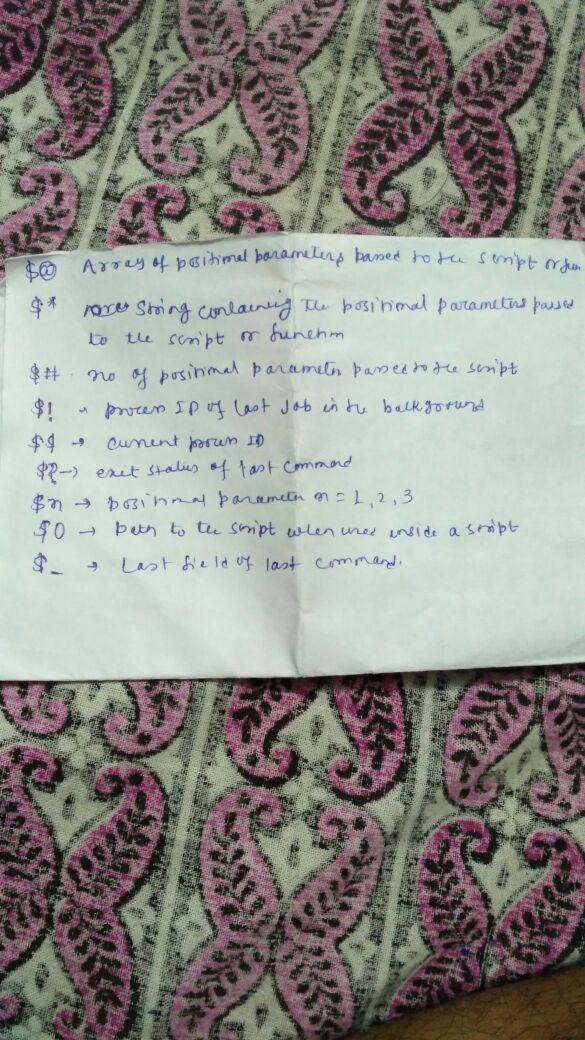 $@ Array of positional parameters passed to the script or fun
$* String containing the positional parameters passed
to the script or function
$# no of positional parameters passed to the script
$! → process ID of last Job in the background
$$ → current process ID
$? → exit status of last command
$n → positional parameter n = 1, 2, 3
$0 → path to the script when used inside a script
$_ → Last field of last command.